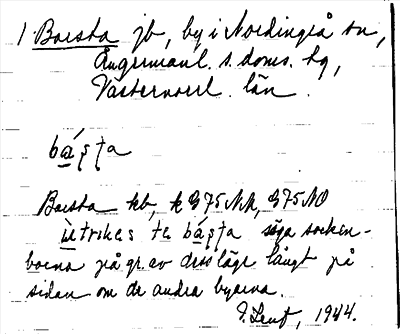 1 Barsta jb, by i Nordingrå sn,
Ångermanl. s. doms. hg,
Västernorrl. län.
bás̩t̩a
Barsta kb, k G75NR, G75NO
utrikes te bás̩t̩a säga socken-
borna på gr. av dess läge långt på
sidan om de andra byarna.
1944.